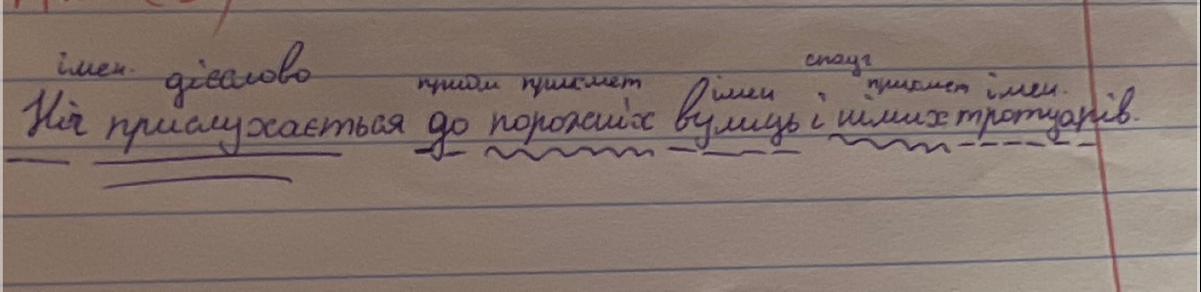 імен. дієслово прийм прикмет імен спол прикмет імен.
Ніч прислухається до порожніх вулиць і німих тротуарів.